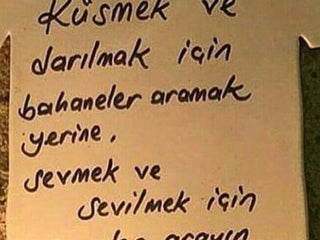 Küsmek ve
darılmak için
bahaneler aramak
yerine,
sevmek ve
sevilmek için
arayın